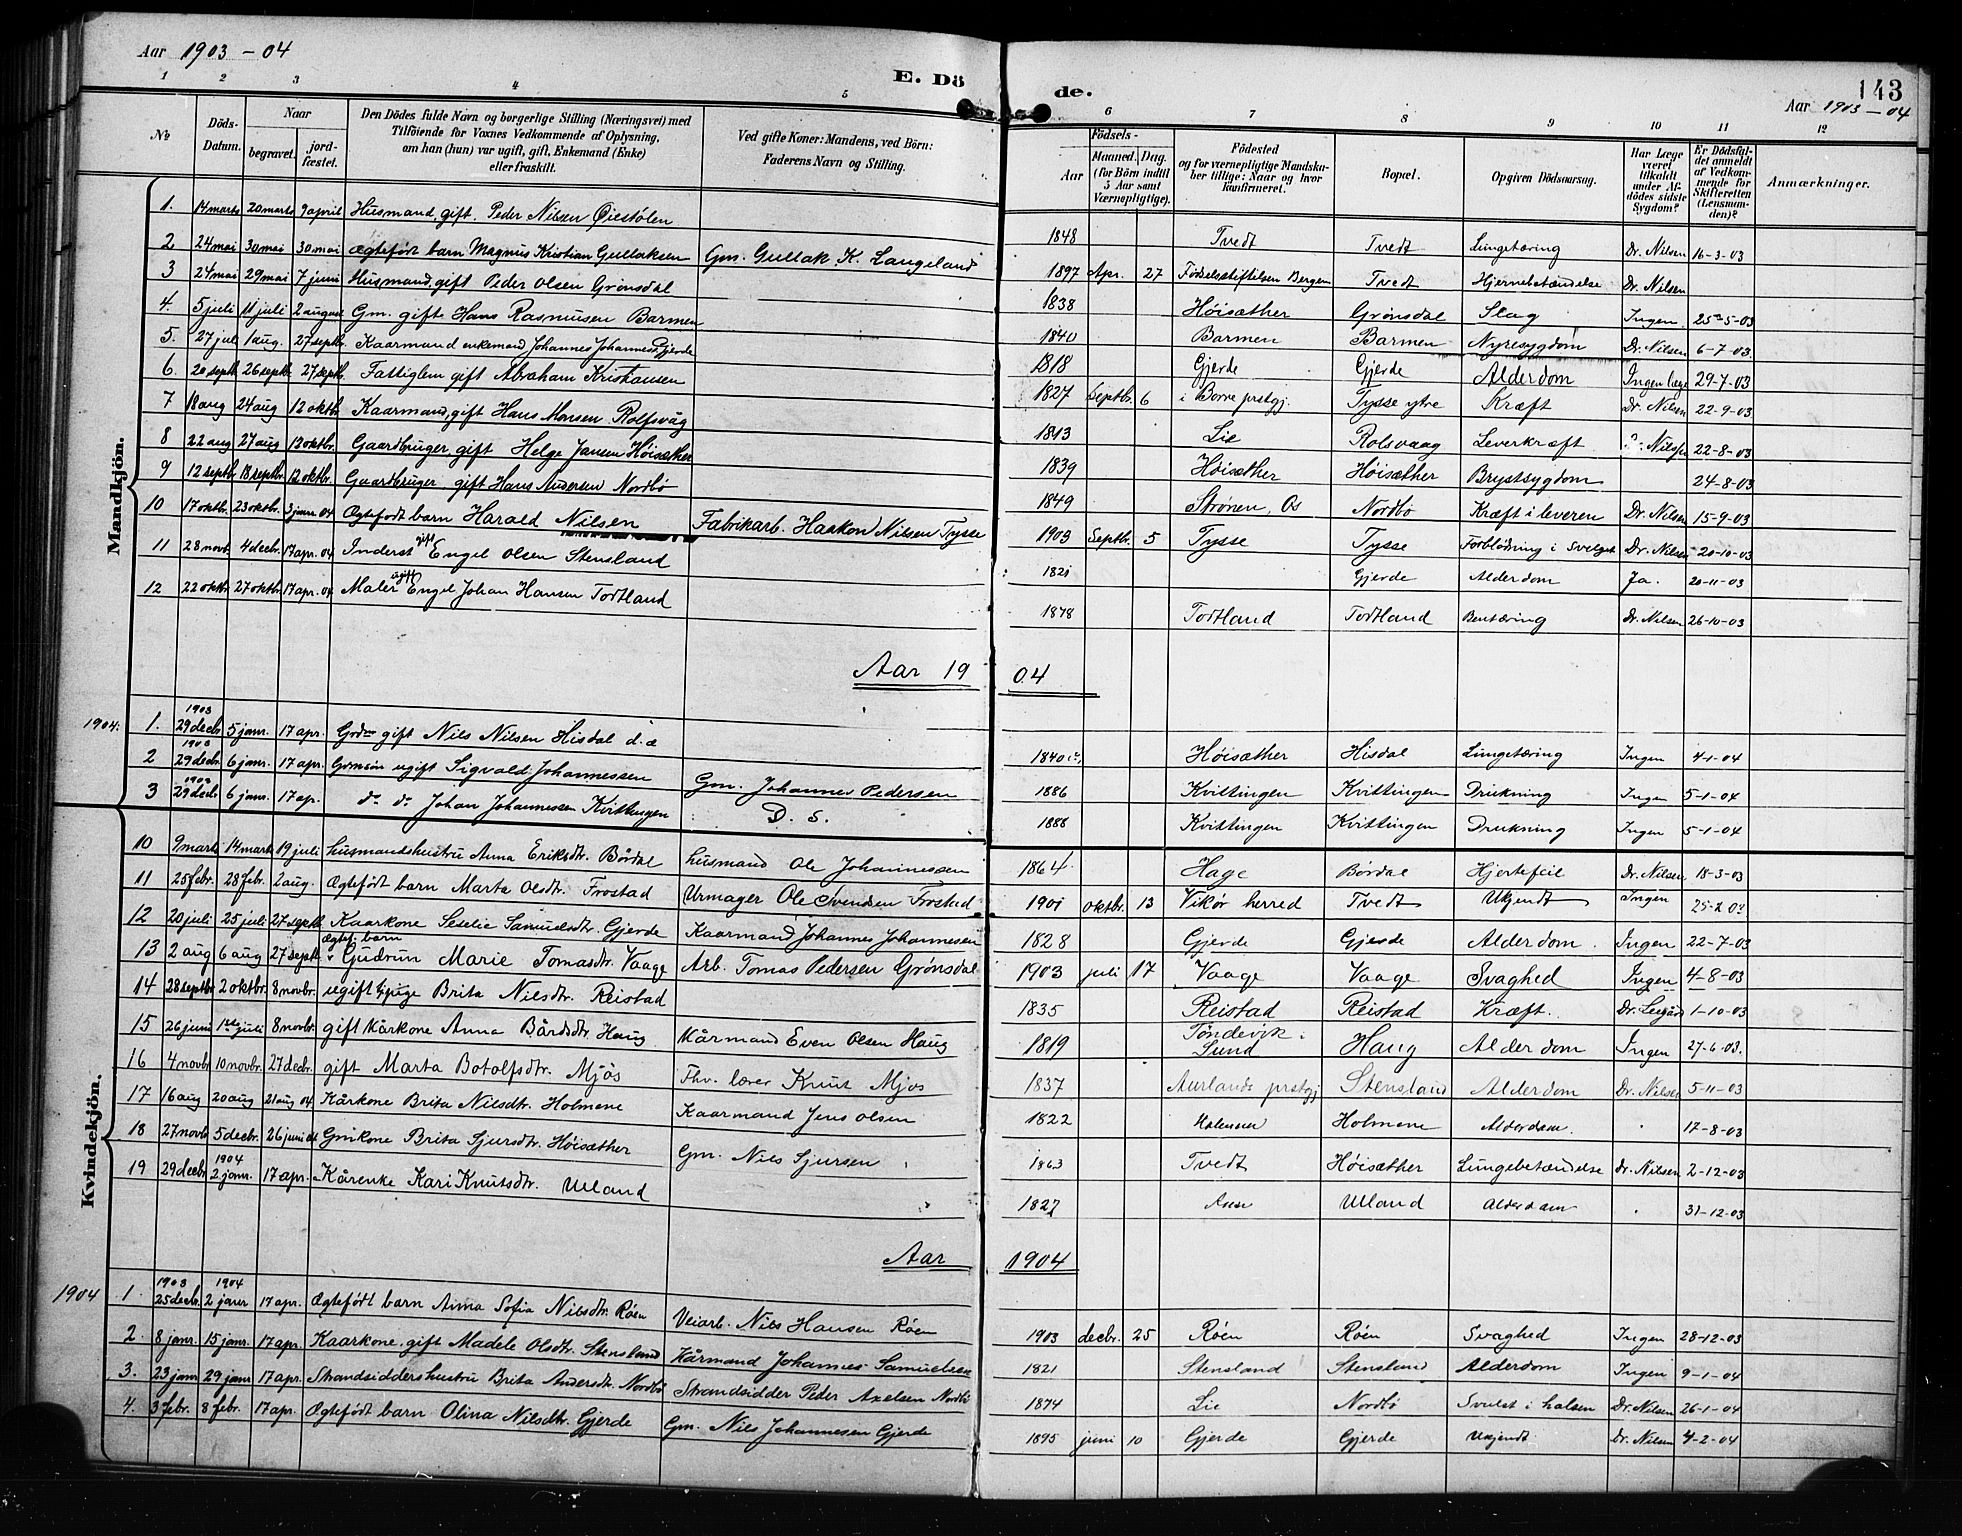 Aar 1903 - 04
E. Dö de.
143
Aar 1903-04
1 2 3 4 5 6 7 8 9 10 11 12
No
Döds-Datum.
Naar begravet. jordfæstet.
Den Dödes fulde Navn og borgerlige Stilling (Næringsvei) med Tilföiende for Voxnes Vedkommende af Oplysning, om han (hun) var ugift, gift, Enkemand (Enke) eller fraskilt.
Ved gifte Koner: Mandens, ved Börn: Faderens Navn og Stilling.
Födsels- Aar Maaned. Dag. (for Börn indtil 5 Aar samt Værnepligtige).
Födested og for værnepligtige Mandskaber tillige: Naar og hvor konfirmeret.
Bopæl.
Opgiven Dödsaarsag.
Har Læge været tilkaldt under Afdödes sidste Sygdom?
Er Dödsfaldet anmeldt af Vedkommende for Skifteretten (Lensmanden)?
Anmærkninger.
Mandkjön.
1. 14 marts 20 marts 9 april Husmand, gift. Peder Nilsen Øiestølen 1848 Tvedt Tvedt Lungetæring Dr. Nilsen 16-3-03
2 24 mai 30 mai 30 mai Ægtefødt barn Magnus Kristian Gullaksen Gm. Gullak K. Langeland 1897 Apr. 27 Fødselsstiftelsen Bergen Tvedt Hjernebetændelse Dr. Nilsen
3 24 mai 29 mai 7 juni Husmand, gift Peder Olsen Grønsdal 1838 Høisæther Grønsdal Slag Ingen 25-5-03
4. 5 juli 11 juli 2 august Gm. gifte Hans Rasmusen Barmen 1840 Barmen Barmen Nyresygdom Dr. Nilsen 6-7-03
5. 27 juli 1 aug. 27 septbr. Kaarmand enkemand Johannes Johannes. Gjerde 1818 Gjerde Gjerde Alderdom Ingen læge 29-7-03
6. 20 septb 26 septbr 27 septb. Fattiglem gift Abraham Kristiansen 1827 Septbr. 6 i Borre prstgj. Tysse ytre Kræft Dr. Nilsen 22-9-03
7 18 aug 24 aug 12 oktbr. Kaarmand, gift Hans Monsen Rolfsvåg 1813 Lie Rolsvaag Leverkræft Nilsen 22-8-03
8 22 aug 27 aug 13 oktbr. Gaardbruger, gift Helge Jansen Høisæther 1839 Høisæther Høisæther Brystsygdom 24-8-03
9 12 septbr 18 septbr. 12 oktbr. Gaardbruger gift Hans Andersen Nordbø 1849 Strønen, Os Nordbø Kræft i leveren Dr. Nilsen 15-9-03
10 17 oktbr. 23 oktbr. 3 janr. 04 Ægtefødt barn Harald Nilsen Fabrikarb. Haakon Nilsen Tysse 1903 Septbr. 5 Tysse Tysse Forblødning i Svelget Dr. Nilsen 20-10-03
11 28 novb. 4 decbr. 17 apr. 04 Inderst gift Engel Olsen Stensland 1821 Gjerde Alderdom Ja. 20-11-03
12 22 oktbr 27 oktbr 17 apr. 04 Maler ugift Engel Johan Hansen Tortland 1878 Tortland Tortland Bentæring Dr. Nilsen 26-10-03
Aar 19 04
1904:
1. 1903 29 decbr 5 janr. 17 apr. gift Nils Nilsen Hisdal d.æ 1840 Høisæther Hisdal Lungetæring Ingen 4-1-04
2 1903 29 decbr. 6 janr. 17 apr. Grmsøn ugift Sigvald Johannessen Gm. Johannes Pedersen 1886 Kvittingen Kvittingen Drukning Ingen 5-1-04
3 1903 29 decbr 6 janr. 17 ap. do do Johan Johannessen Kvittingen D. S. 1888 Kvittingen Kvittingen Drukning Ingen 5-1-04
Kvindekjön.
10 9 marts 14 marts 19 juli husmandshustru Anna Eriksdtr. Børdal husmand Ole Johannessen 1864 Hage Børdal Hjertefeil Dr. Nilsen 18-3-03
11 25 febr. 28 febr. 2 aug. Ægtefødt barn Marta Olsdtr. Frostad Urmager Ole Svendsen Frostad 1901 oktbr. 13 Vikør herred Tvedt Ukjendt Ingen 25-2 03
12 20 juli 25 juli 27 septbr Kaarkone Seselie Samuelsdtr. Gjerde Kaarmand Johannes Johannesen 1828 Gjerde Gjerde Alderdom. Ingen 22-7-03
13 2 aug 6 aug 27 septb Ægtef. barn Gudrun Marie Tomasdtr. Vaage Arb. Tomas Pedersen Grønsdal 1903 juli 17 Vaage Vaage Svaghed Ingen 4-8-03
14 28 septbr. 2 oktbr. 8 novbr. ugift pige Brita Nilsdtr. Reistad 1835 Reistad Reistad Kræft. 1-10-03
15 26 juni 1ste juli 8 novbr. gift Kårkone Anna Bårdsdtr. Haug Kårmand Even Olsen Haug 1819 Tøndevik Lund Haug Alderdom Ingen 27-6-03.
16 4 novbr 10 novbr. 27 decbr. gift Marta Botolfsdtr. Mjøs Fhv. lærer Knut Mjøs 1837 Aurlands prstgj Stensland Alderdom Dr. Nilsen 5-11-03
17 16 aug 20 aug 21 aug 04 Kårkone Brita Nilsdtr. Holmene Kaarmand Jens Olsen 1822 Holmene Alderdom. 17-8-03
18 27 novb 5 decbr. 26 juni 04 Gmkone Brita Sjursdtr. Høisæther Gm. Nils Sjursen 1863 Tvedt Høisæther Lungebetændelse dr. Nilsen 2-12-03
19 29 decbr 1904 2 janr. 17 apr. Kårenke Kari Knutsdtr. Ulland 1827 Aase Ulland Alderdom 31-12-03
Aar 1904
1904
1. 1903 25 decbr. 1904 2 janr 17 apr. Ægtefødt barn Anna Sofia Nilsdtr. Røen Veiarb. Nils Hansen Røen 1903 decbr. 25 Røen Røen Svaghed Ingen 28-12-03
2. 8 janr. 15 janr. 17 apr. Kaarkone, gift Madele Olsdtr. Stensland Kårmand Johannes Samuelsen 1821 Stensland Stensland Alderdom Ingen 9-1-04
3. 23 janr 29 janr 17 apr. Strandsidderhustru Brita Andersdtr. Nordbø Strandsidder Peder Axelsen Nordbø 1874 Lie Nordbø Svulst i halsen Dr. Nilsen 26-1-04
4. 3 febr. 8 febr. 17 apr. Ægtefødt barn Olina Nilsdtr. Gjerde Gm. Nils Johannesen Gjerde 1895 juni 10 Gjerde Gjerde Ukjendt Dr. Nilsen 4-2-04